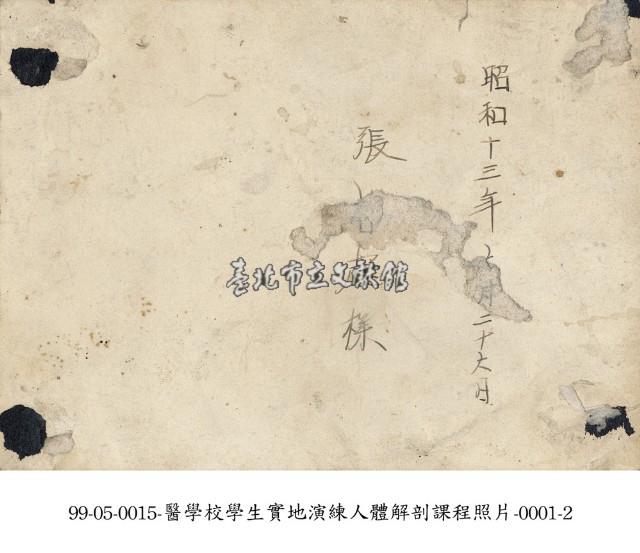 昭和十三年 月二十六日
張
様
臺北市立文獻館
99-05-0015-醫學校學生實地演練人體解剖課程照片-0001-2